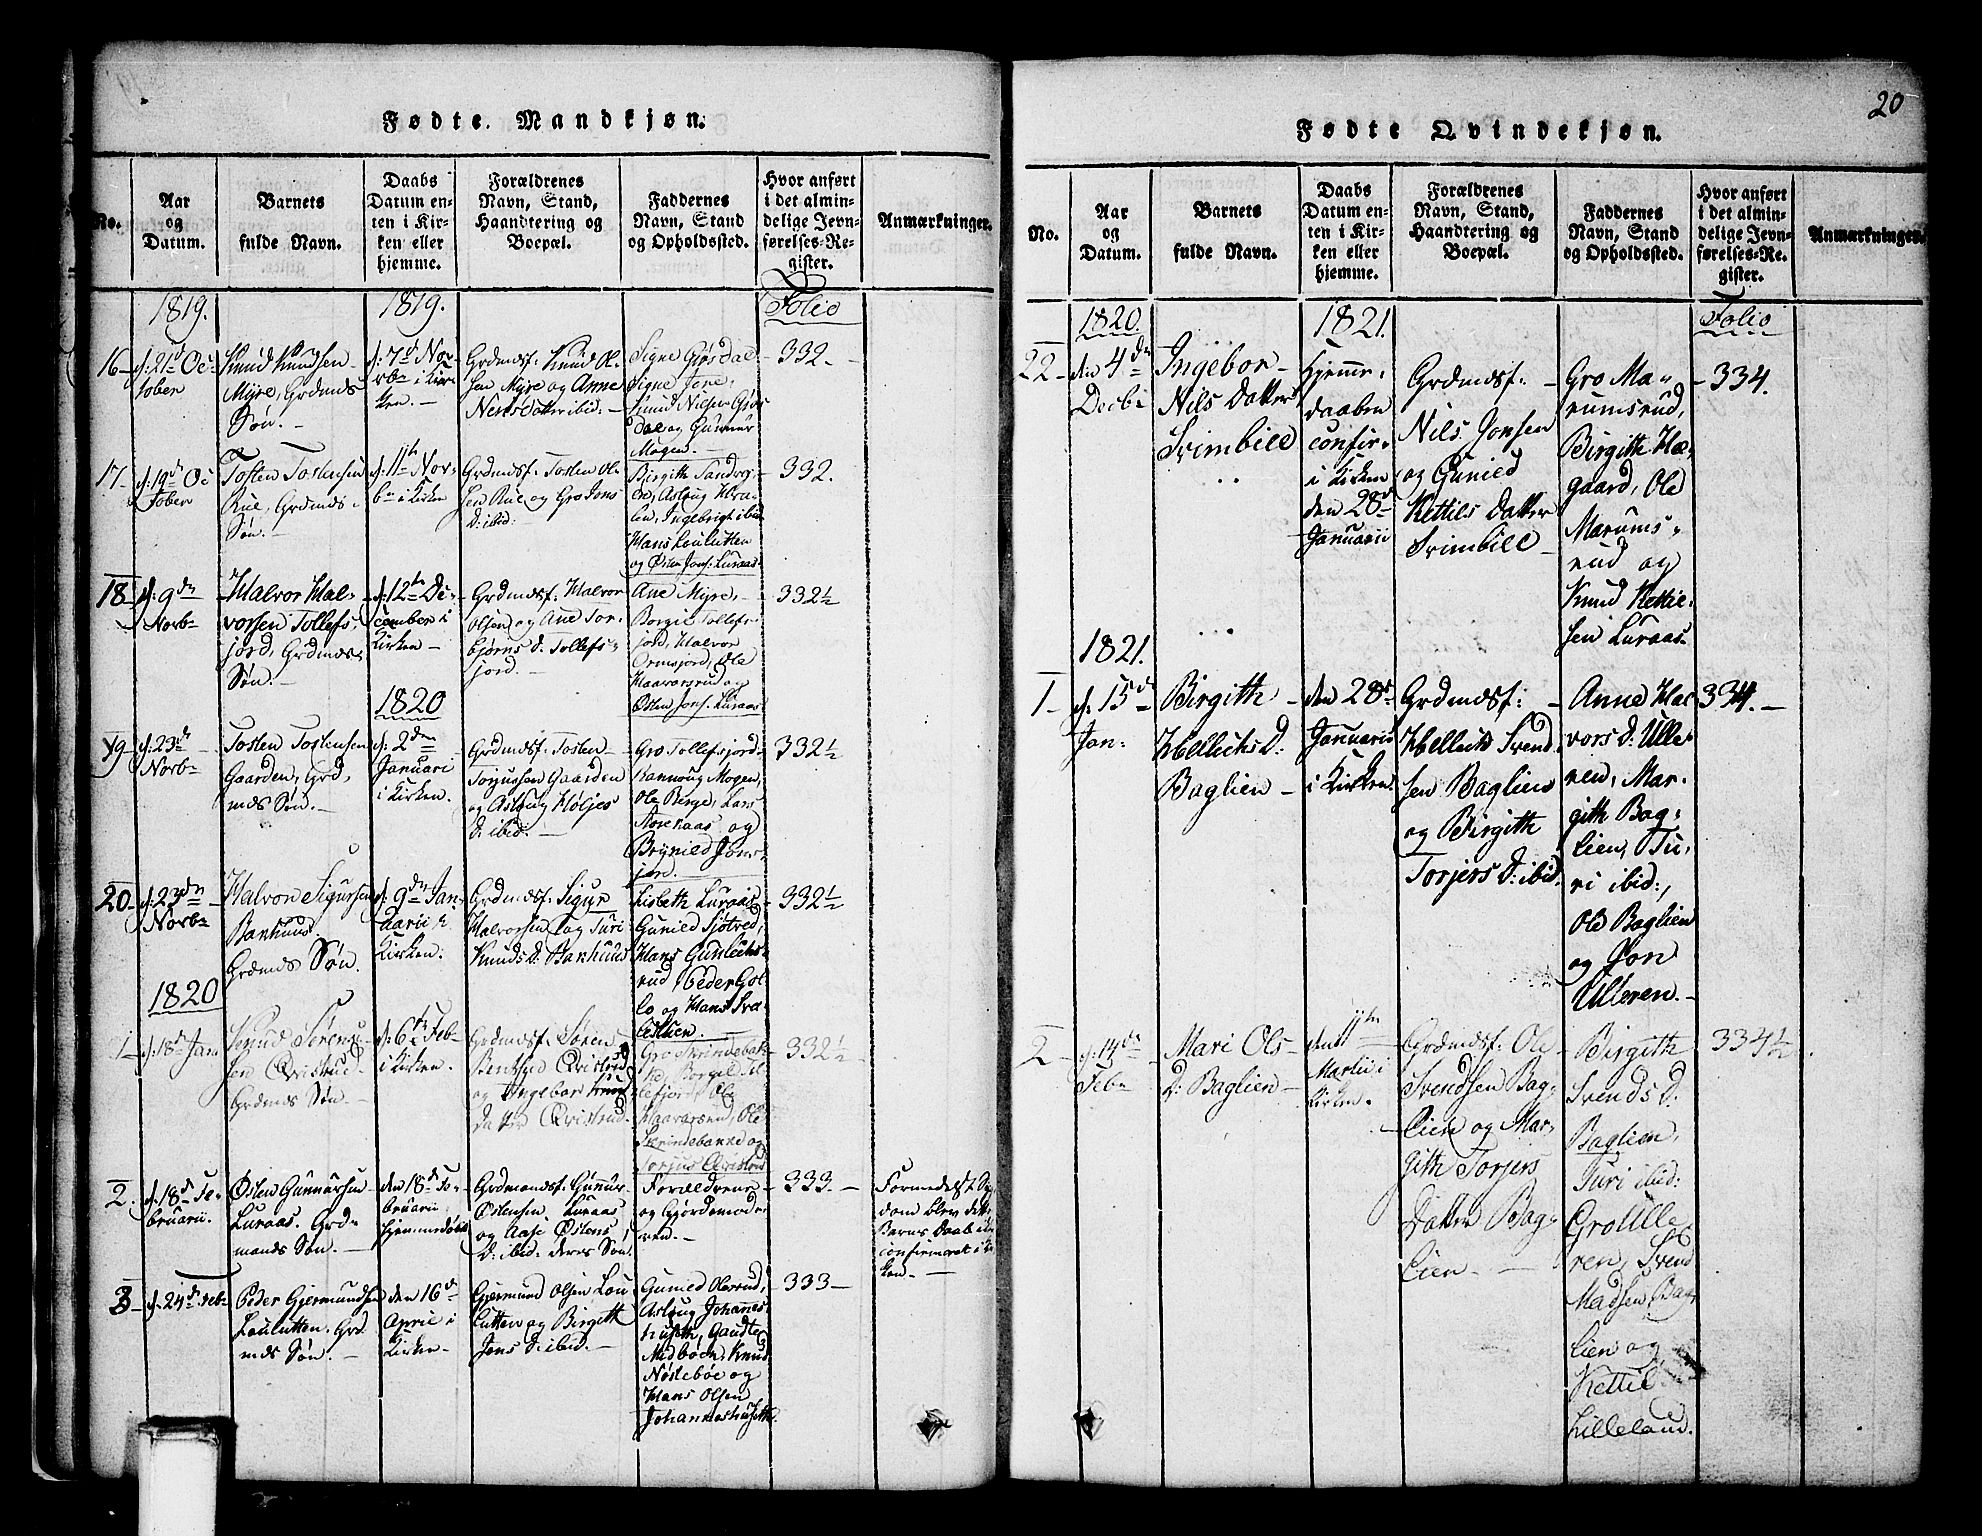 Fødte Mandkjøn.
No.
Aar
og
Datum.
Barnets
fulde Navn.
Daabs
Datum en-
ten i Kir-
ken eller
hjemme.
Forældrenes
Navn, Stand,
Haandtering og
Boepæl.
Faddernes
Navn, Stand
og Opholdssted.
Hvor anført
i det almin-
delige Jevn-
førelses-Re-
gister.
Anmærkninger.
1819.
1819.
Folio
16
d: 21d Oc-
tober
Knud Knudsen
Myre, Grdmds
Søn.
d: 7d Nov-
br i Kir-
ken.
Grdmdsf: Knud Ol-
sen Myre og Anne
Nerisdatter ibid.
Signe Gjøsdal
Signe Jore,
Knud Nilsen Gjøs
dal og Gunnur
Mogen.
332.
17
d: 19d Oc
tober
Tosten Tostensen
Rue, Grdmds
Søn.
d: 11te Nov-
br i Kirken
Grdmdsf: Tosten Ol-
sen Rue og Gro Jons
D: ibid:
Birgith
Aslaug
Ingebrigt ibid
Hans Loulutten
og Østen Jons: Luraas
332.
18
d: 9de
Novbr
Halvor Hal-
vorsen Tollefs-
jord, Grdmds
Søn.
d: 12te De-
cember i
Kirken
Grdmdsf: Halvor
Olsen og Ane Tor-
bjørns D. Tollefs-
jord.
Ane Myre,
Borgil Tollefs-
jord, Halvor
Ormsjord, Ole
Haavarsrud og
Østen Jons: Luraas
332½
1820
19
d: 23de
Novbr
Tosten Tostensen
Gaarden, Grd,
mds Søn.
d: 2den
Januari
i Kirken.
Grdmdsf: Tosten
Torgussen Gaarden
og Aslaug Høljes
D: ibid:
Gro Tollefsjord
Rannoug Mogen,
Ole Berge, Lars
og
Brynild Jons-
jord.
332½
20
d: 23de
Novbr
Halvor Sigursen
Bakhuus.
Grdmds Søn.
d: 9de Jan-
uarii i
Kirken.
Grdmdsf: Sigur
Halvorsen og Turi
Knuds D: Bakhuus
Lisbeth Luraas
Gunild Sjotved,
Hans Gunlechs-
rud, Peder Gol-
lo og Hans Sva-
lestuen.
332½
1820
1
d: 18d Jan
Knud Søren-
sen Qvistrud
Grdmds Søn
d: 6te Feb
i Kirken.
Grdmdsf: Søren
Bentsen Qvistrud
og Ingebor Knuds
Datter Qvistrud
Gro Skrindebak-
ke, Borgil Tol-
lefsjord, Ole
Haavarsrud, Ole
Skrindebakke og
Torjus Qvistrud
332½
2.
d: 18d Fe-
bruarii.
Østen Gunnursen
Luraas. Grd-
mands Søn.
den 18d Fe-
bruarii
hjemmedøbt
Grdmandsf: Gunnur
Østensen Luraas
og Aase Østens
D: ibid: deres Søn.
Forældrene
og Gjordemode-
ren.
333
Formedelst Syg-
dom blev dette
Barns Daab ikke
confirmeret i Kir-
ken.
3
d. 24d Feb
Peder Gjermundsen
Loulutten. Grd-
mds Søn.
den 16d
April i
Kirken.
Gjermund Olsen Lou-
lutten og Birgith
Jons D: ibid.
Gunild Olesrud,
Aslaug Johannes-
huseth, Gaute
Midbøen, Knud
Nøstebøe og
Hans Olsen
Johanneshuseth
333
20
Fødte Qvindekjøn.
No.
Aar
og
Datum.
Barnets
fulde Navn.
Daabs
Datum en-
ten i Kir-
ken eller
hjemme.
Forældrenes
Navn, Stand,
Haandtering og
Boepæl.
Faddernes
Navn, Stand
og Opholdssted.
Hvor anført
i det almin-
delige Jevn-
førelses-Re-
gister.
Anmærkninger.
1820.
1821.
Folio
22
den 4de
Decbr
Ingebor
Nils Datter
Svimbill
Hjemme-
daaben
confir-
i Kirken
den 28d
Januarii
Grdmdsf:
Nils Jonsen
og Gunild
Kettils Datter
Svimbill
Gro Ma-
rumsrud,
Birgith Hæ-
gaard, Ole
Marums-
rud og
Knud Kettil-
sen Luraas.
334.
1821.
1
d. 15d
Jan:
Birgith
Hellichs D:
Baglien
den 28d
Januarii
i Kirken
Grdmdsf:
Hellick Svend
sen Baglien
og Birgith
Torjers D: ibid.
Anne Hal
vors D: Ulle-
ren, Mar-
gith Bag-
lien, Tu-
ri ibid:,
Ole Baglien
og Jon
Ulleren.
334.
2
d. 14de
Febr
Mari Ols
D: Baglien
den 11te
Martii i
Kirken.
Grdmdsf: Ole
Svendsen Bag-
lien og Mar-
gith Torjers
Datter Bag-
lien.
Birgith
Svends D.
Baglien,
Turi ibid:
Gro Ulle-
ren, Svend
Madsen Bag-
lien og
Kettil
Lilleland.
334½